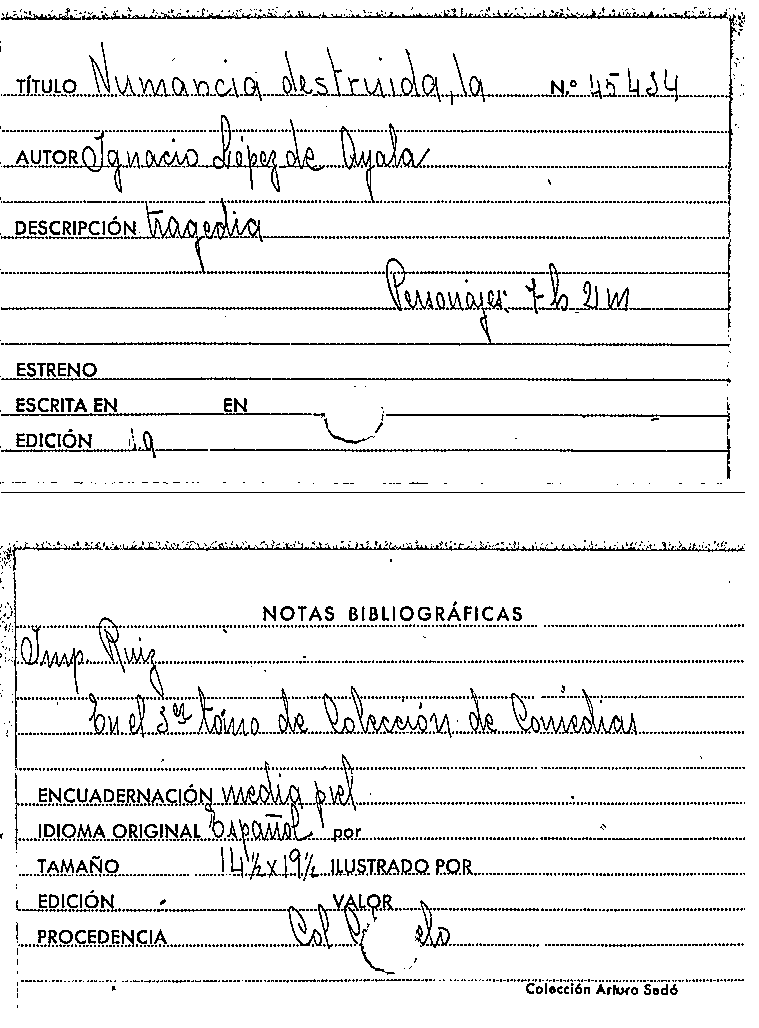 TÍTULO Numancia destruida, la N.º 45434
AUTOR Ignacio López de Ayala
DESCRIPCIÓN tragedia
Personajes: 7 h 2 m
ESTRENO
ESCRITA EN EN
EDICIÓN
NOTAS BIBLIOGRÁFICAS
Imp. Ruiz
En el 3er tomo de Colección de Comedias
ENCUADERNACIÓN media piel
IDIOMA ORIGINAL Español por
TAMAÑO 14½ x 19½ ILUSTRADO POR
EDICIÓN VALOR
PROCEDENCIA Col
Colección Arturo Sedó